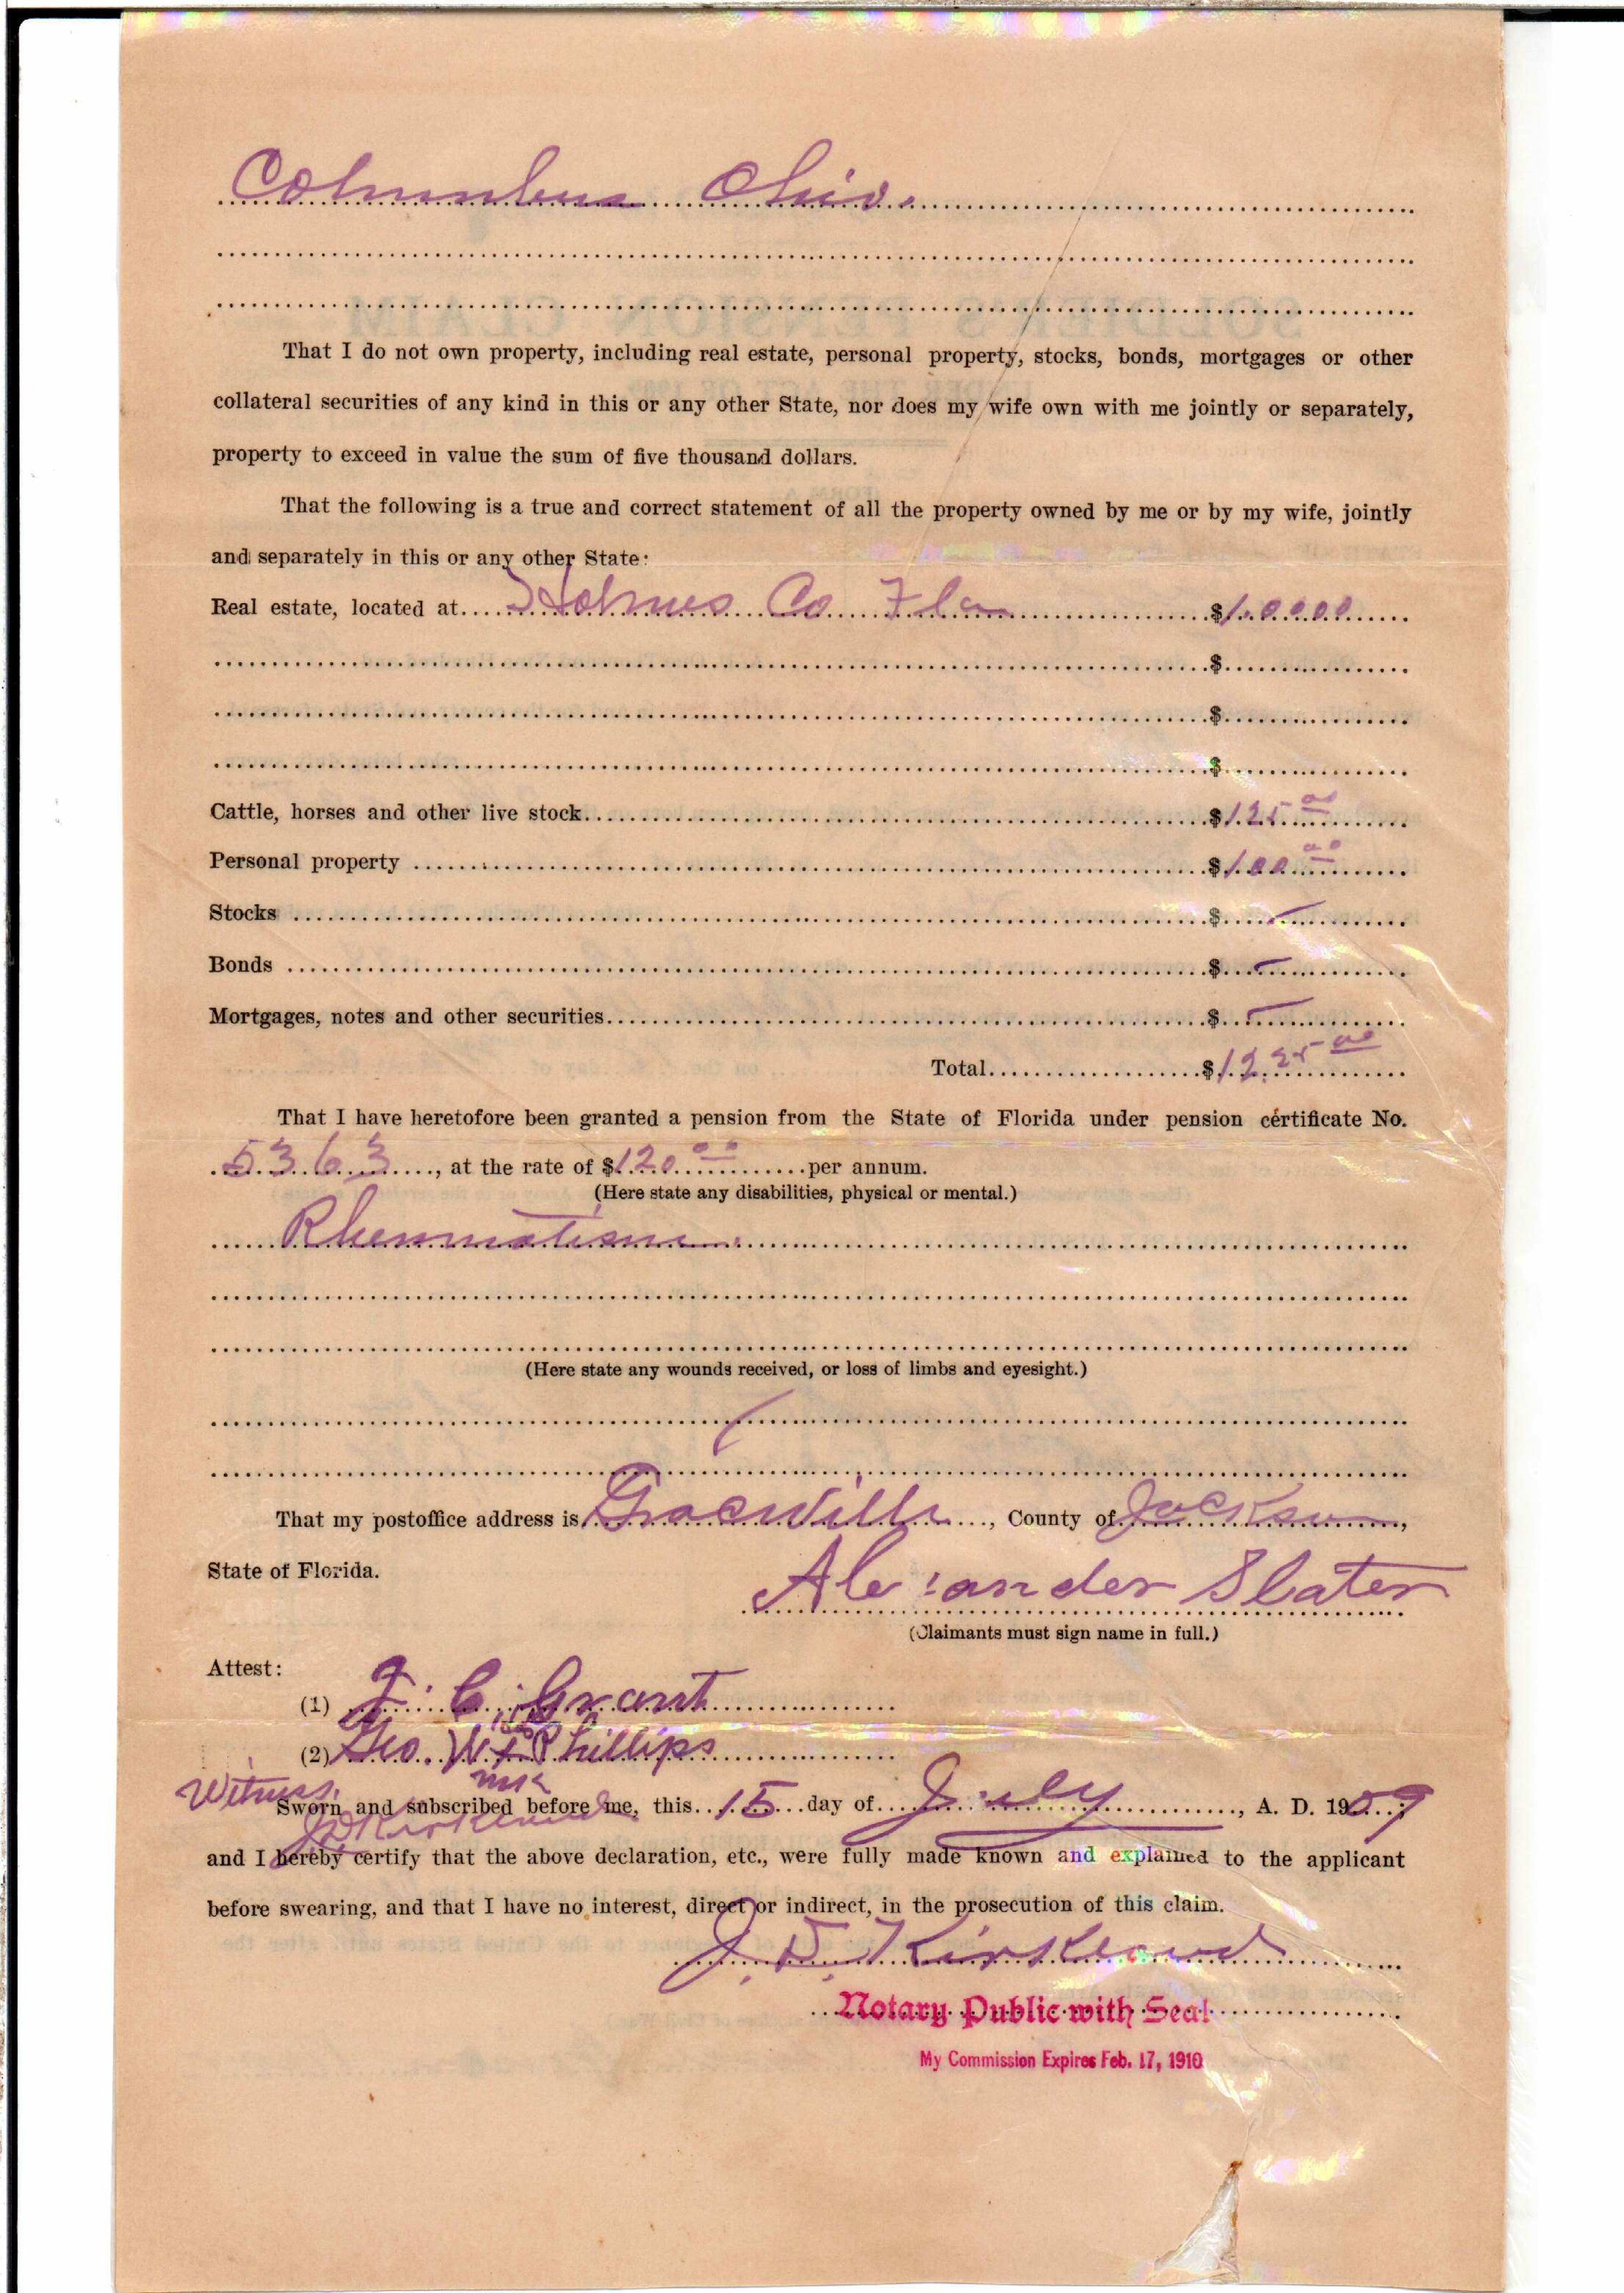 Columbus Ohio.
That I do not own property, including real estate, personal property, stocks, bonds, mortgages or other
collateral securities of any kind in this or any other State, nor does my wife own with me jointly or separately,
property to exceed in value the sum of five thousand dollars.
That the following is a true and correct statement of all the property owned by me or by my wife, jointly
and separately in this or any other State:
Real estate, located at Holmes Co Fla $1,0000
$
$
$
Cattle, horses and other live stock $125 00
Personal property $100 00
Stocks $ —
Bonds $ —
Mortgages, notes and other securities $ —
Total $1225 00
That I have heretofore been granted a pension from the State of Florida under pension certificate No.
5363, at the rate of $120 00 per annum.
(Here state any disabilities, physical or mental.)
Rheumatism
(Here state any wounds received, or loss of limbs and eyesight.)
That my postoffice address is Gracville, County of Jackson,
State of Florida.
Alexander Slater
(Claimants must sign name in full.)
Attest:
(1) J. C. Grant
(2) Geo. W. his x Phillips
mk
Witness.
Sworn and subscribed before me, this 15 day of July, A. D. 1909;
J D Kirkland
and I hereby certify that the above declaration, etc., were fully made known and explained to the applicant
before swearing, and that I have no interest, direct or indirect, in the prosecution of this claim.
J. D. Kirkland
Notary Public with Seal
My Commission Expires Feb. 17, 1910